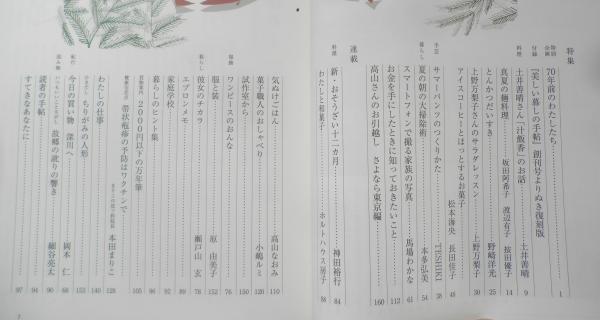 特集
特別企画 70年前のわたしたち 1
付録 『美しい暮しの手帖』創刊号よりぬき復刻版
料理 土井善晴さん「汁飯香」のお話 土井善晴 9
真夏の麺料理 坂田阿希子 渡辺有子 按田優子 14
とんかつだいすき 野﨑洋光 25
上野万梨子さんのサラダレッスン 上野万梨子 30
アイスコーヒーとほっとするお菓子 松本海央 長田佳子 48
手芸 サマーパンツのつくりかた TESHIKI 38
暮らし 夏の朝の大掃除術 本多弘美 54
スマートフォンで撮る家族の写真 馬場わかな 61
お金を手にしたときに知っておきたいこと 112
高山さんのお引越し さよなら東京編 160
連載
料理 新・おそうざい十二カ月 神田裕行 84
わたしと和菓子 ホルトハウス房子 88
気ぬけごはん 高山なおみ 110
菓子職人のおしゃべり 小嶋ルミ 126
試作室から 150
服飾 ワンピースのおんな 76
服と装 原 由美子 152
暮らし 彼女のチカラ 瀬戸山 玄 78
エプロンメモ 89
家庭学校 92
暮らしのヒント集 96
買物案内 2000円以下の万年筆 105
健康 帯状疱疹の予防はワクチンで 128
わたしの仕事 本田まりこ 140
ちりがみの人形 153
紀行 今日の買い物 深川へ 岡本 仁 68
読み物 故郷の訛りの響き 細谷亮太 90
読者の手帖 94
すてきなあなたに 97
7